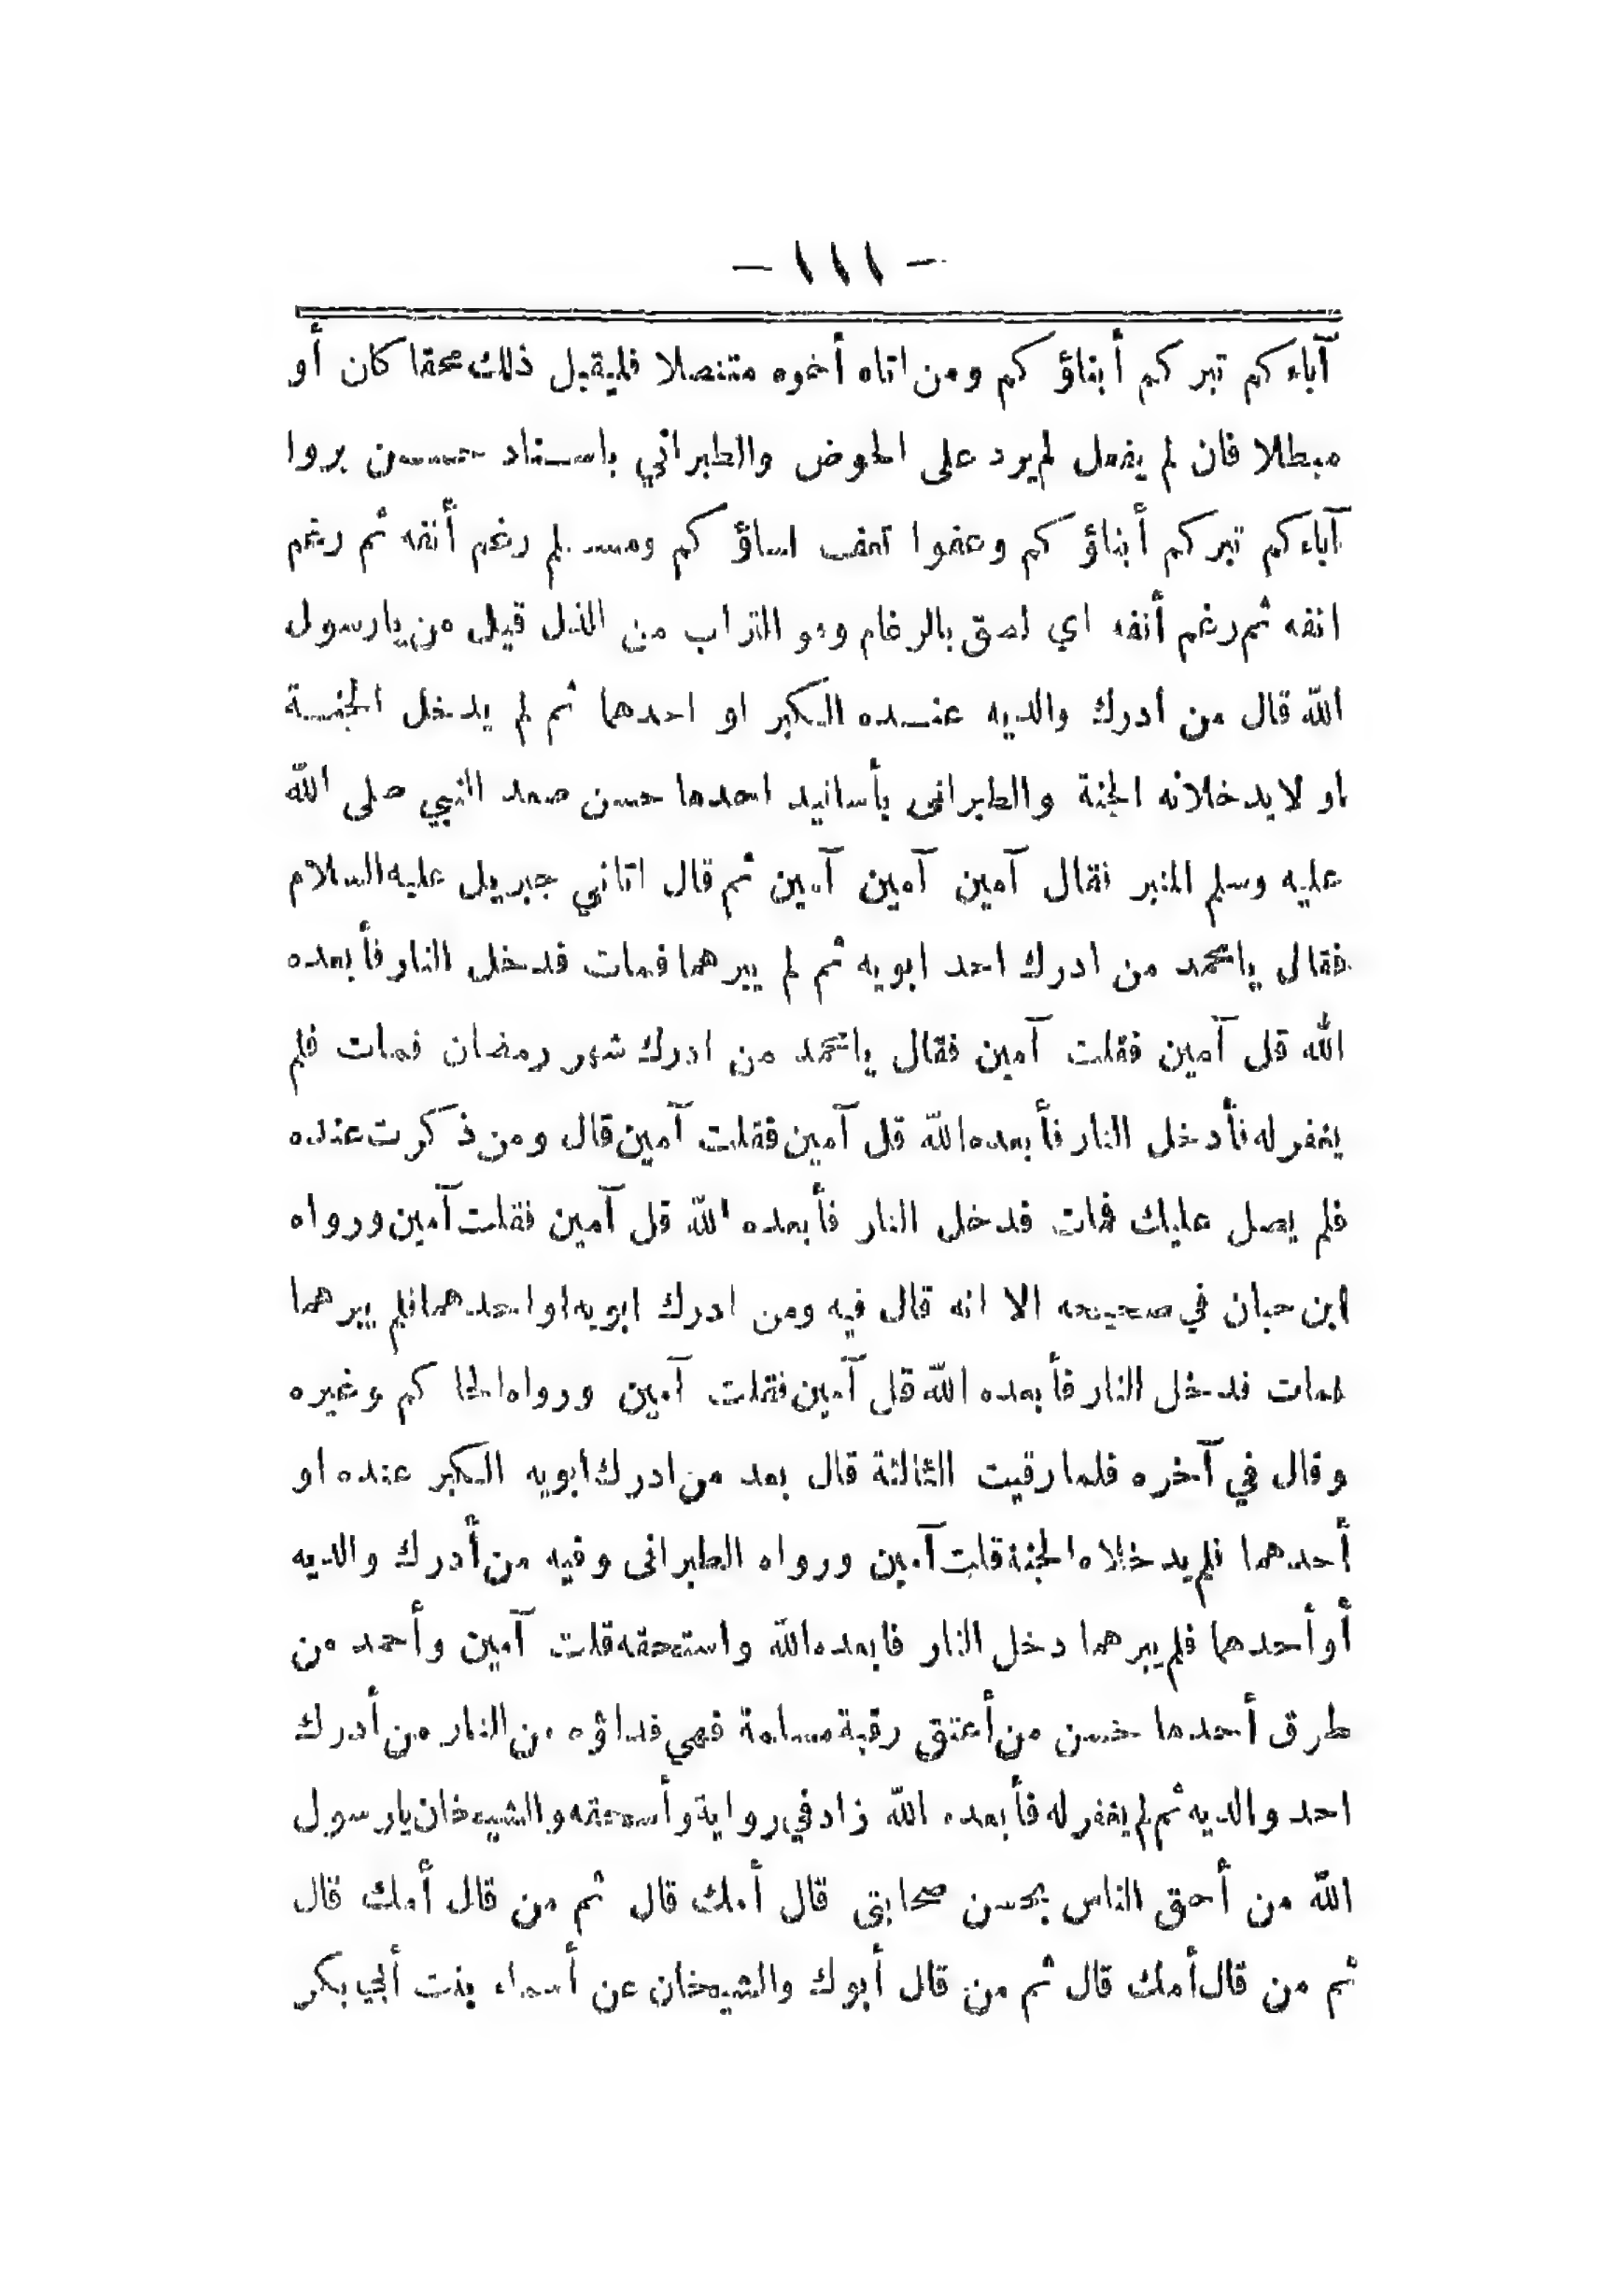 - ١١١ -
آباءكم تبركم أبناؤكم ومن اتاه أخوه متنصلا فليقبل ذلك محقا كان أو
مبطلا فان لم يفعل لم يرد على الحوض والطبراني باسناد حسن بروا
آباءكم تبركم أبناؤكم وعفوا تعف نساؤكم ومسلم رغم أنفه ثم رغم
انفه ثم رغم أنفه اي لصق بالرغام وهو التراب من الذل قيل من يارسول
الله قال من ادرك والديه عنده الكبر او احدهما ثم لم يدخل الجنة
او لا يدخلانه الجنة والطبرانى بأسانيد احدها حسن صعد النبي صلى الله
عليه وسلم المنبر فقال آمين آمين آمين ثم قال اتاني جبريل عليه السلام
فقال يامحمد من ادرك احد ابويه ثم لم يبرهما فمات فدخل النار فأبعده
الله قل آمين فقلت آمين فقال يامحمد من ادرك شهر رمضان فمات فلم
يغفر له فأدخل النار فأبعده الله قل آمين فقلت آمين قال ومن ذكرت عنده
فلم يصل عليك فمات فدخل النار فأبعده الله قل آمين فقلت آمين ورواه
ابن حبان في صحيحه الا انه قال فيه ومن ادرك ابويه او احدهما فلم يبرهما
فمات فدخل النار فأبعده الله قل آمين فقلت آمين ورواه الحاكم وغيره
وقال في آخره فلما رقيت الثالثة قال بعد من ادرك ابويه الكبر عنده او
أحدهما فلم يدخلاه الجنة قلت آمين ورواه الطبرانى وفيه من أدرك والديه
أو أحدهما فلم يبرهما دخل النار فابعده الله واستحقه قلت آمين وأحمد من
طرق أحدها حسن من أعتق رقبة مسلمة فهي فداؤه من النار من أدرك
احد والديه ثم لم يغفر له فأبعده الله زاد في رواية وأسحقه والشيخان يارسول
الله من أحق الناس بحسن صحابتى قال أمك قال ثم من قال أمك قال
ثم من قال أمك قال ثم من قال أبوك والشيخان عن أسماء بنت أبي بكر